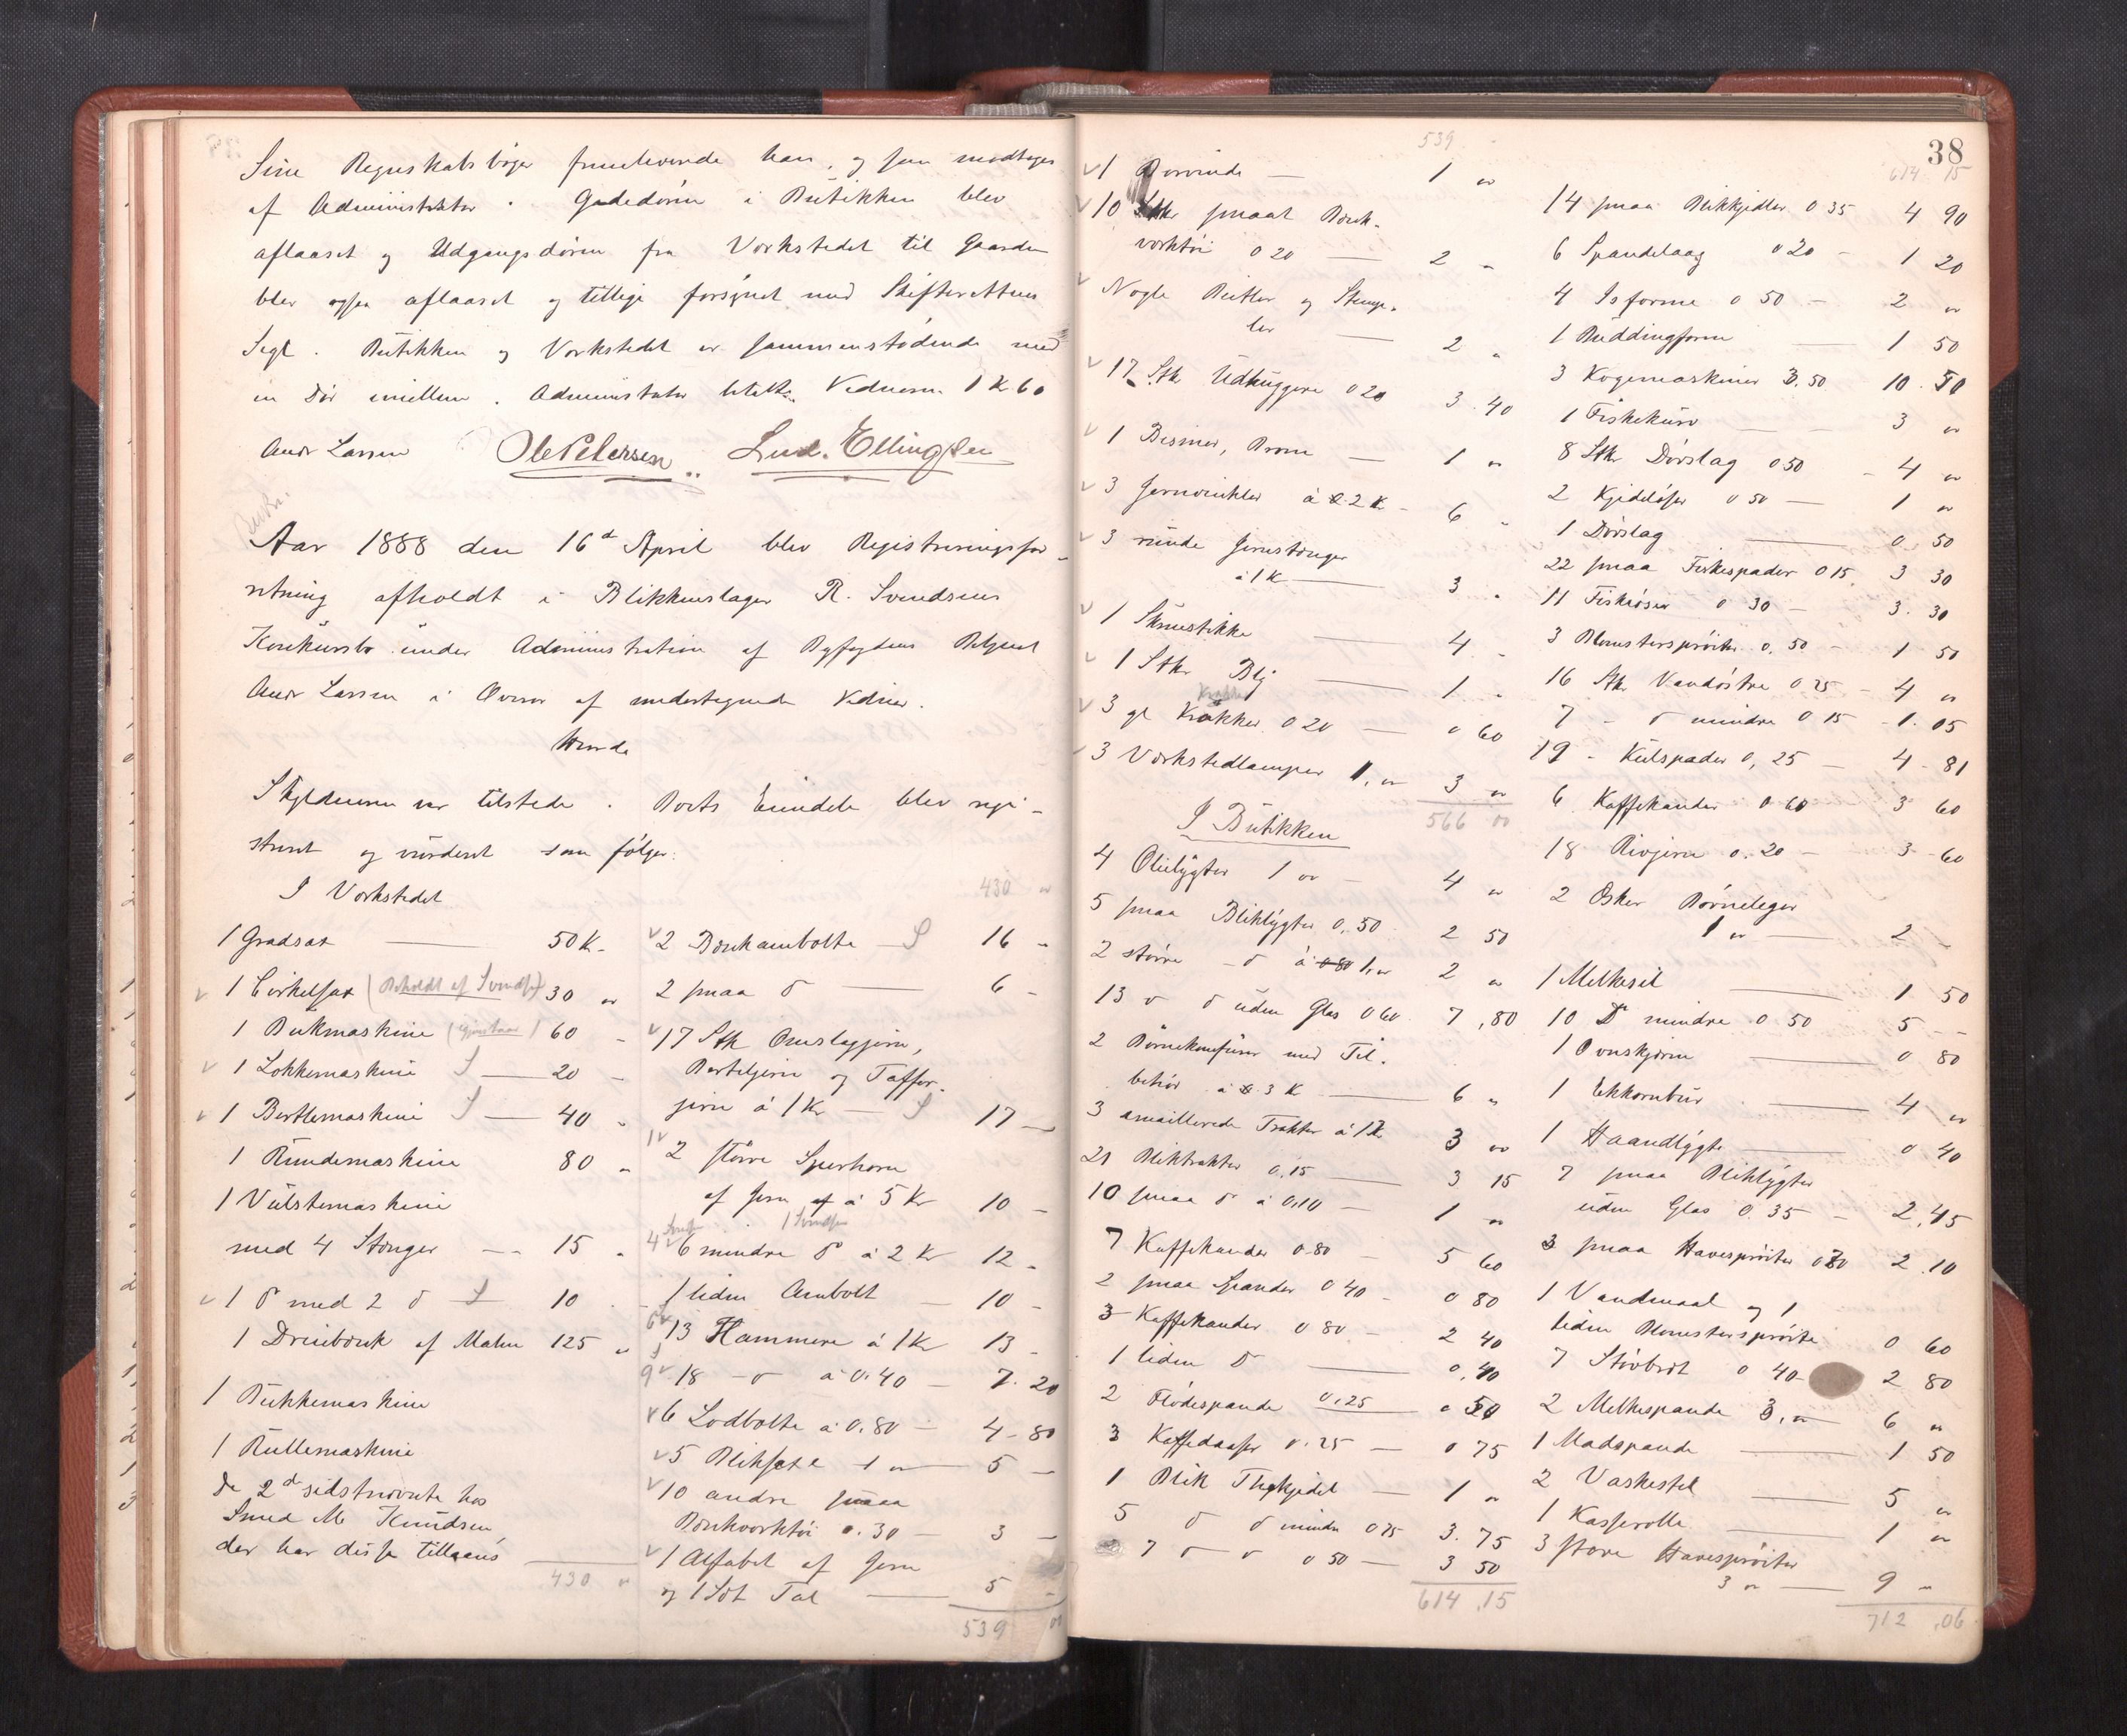 Sine Regnskabsbøger fremleverede han, og som modtoges
af Administrator. Gadedøren i Butikken blev
aflaaset og Udgangsdøren fra Værkstedet til Gaarden
blev ogsaa aflaaset og tillige forsynet med Skifterettens
Segl. Butikken og Værkstedet er sammenstødende med
en Dør imellem. Administrator betalte Vidnerne 1 K 60
Andr Larsen Ole Petersen Lud. Ellingsen
Aar 1888 den 16d April blev Registreringsfor-
retning afholdt i Blikkenslager R. Svendsens
Konkursbo under Administration af Byfogdens Betjent
Andr Larsen i Overvær af undertegnede Vidner.
Hvorda
Skyldneren var tilstede. Boets Eiendele blev regi-
streret og vurderet som følger:
I Værkstedet
1 Gradsax 50 K -
1 Cirkelsax (Beholdt af Svendsen) 30 "
1 Bukmaskine 60 -
1 Lokkemaskine S 20 -
1 Bertlemaskine S 40 "
1 Rundemaskine 80 "
1 Vulstemaskine
med 4 Stænger 15 "
1 d med 2 d S 10
1 Dreiebænk af Malm 125 "
1 Bukkemaskine
1 Rullemaskine
de 2d sidstnævnte hos
Smed M Knudsen,
der har disse tillaans
430 "
430 "
2 Bænkambolte S 16 -
2 smaa d 6 -
17 Stk Omslagjern,
Berteljern og Taffer-
jern á 1 Kr S 17 -
2 større Sperhorn
af Jern á 5 Kr 10 -
6 mindre d á 2 Kr 12 -
1 liden Ambolt 10 -
13 Hammere á 1 Kr 13 -
18 - d á 0.40 7.20
6 Lodbolte á 0.80 4-80
5 Bliksaxe 1 " 5 -
10 andre smaa
Bænkværktøi 0.30 3 -
1 Alfabet af Jern
og 1 Sæt Tal 5 -
539 00
539
1 Borvinde 1 "
10 Stkr smaat Bænk-
værktøi 0 20 2 "
Nogle Beitler og Stemp-
ler 2 "
17 Stk Udhuggere 0 20 3.40
1 Bismer, Brom 1 "
3 Jernvinkler á 2 K 6 "
3 runde Jernstænger
á 1 K 3 "
1 Skruestikke 4 "
1 Stkr Bly 1 "
3 gl Krakker 0 20 0 60
3 Værkstedlamper 1," 3 "
566 00
I Butikken
4 Olielygter 1 " 4 "
5 smaa Bliklygter 0.50 2 50
2 større - d á 1," 2 "
13 " d uden Glas 0 60 7,80
2 Børnekomfurer med Til-
behør á 3 K 6 "
3 emaillerede Trakter á 1 Kr 3 "
21 Bliktrakter 0,15 3 15
10 smaa d á 0,10 1 "
7 Kaffekander 0.80 5 60
2 smaa Spander 0 40 0 80
3 Kaffekander 0 80 2 40
1 liden D 0,40
2 Flødespande 0,25 0 50
3 Kaffedaaser 0.25 0 75
1 Blik Thekjedel 1 "
5 d d mindre 0 75 3.75
7 d d 0 50 3 50
614.15
38
614 15
14 smaa Blikkjedler 0 35 4 90
6 Spandelaag 0 20 1 20
4 Isforme 0 50 2 "
1 Buddingform 1 50
3 Kogemaskiner 3.50 10.50
1 Fiskekurv 3 "
8 Stkr Dørslag 0 50 4 "
2 0 50 1 "
1 Dørslag 0 50
22 smaa Fiskespader 0 15 3 30
11 Fiskøser 0 30 3.30
3 Blomstersprøiter 0.50 1 50
16 Stkr Vandøstre 0.25 4 "
7 - d mindre 0 15 1.05
19 - Kulspader 0,25 4-81
6 Kaffekander 0 60 3 60
18 Rivjern 0.20 3-60
2 Øsker Børneleger
1 " 2 -
1 Melkesil 1 50
10 D mindre 0 50 5 -
1 Ovnskjærm 0 80
1 Ekkornbur 4 "
1 Haandlygte 0 40
7 smaa Bliklygter
uden Glas 0.35 2,45
3 smaa Havesprøiter 0 70 2.10
1 Vandmaal og 1
liden Blomstersprøite 0 60
7 Støvbræt 0 40 2 80
2 Melkespande 3," 6 "
1 Madspande 1 50
2 Vaskestel 5 "
1 Kasserolle 1 "
3 store Havesprøiter
3 " 9 "
712.06